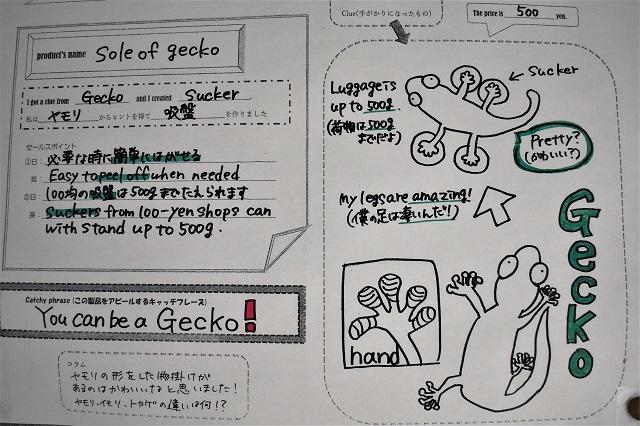 product's name Sole of gecko
I got a clue from Gecko and I created Sucker
私は ヤモリ からヒントを得て 吸盤 を作りました
セールスポイント
①日: 必要な時に簡単にはがせる
英: Easy to peel off when needed
②日: 100均の吸盤は500gまでたえられます
英: suckers from 100-yen shops can
with stand up to 500g.
Catchy phrase (この製品をアピールするキャッチフレーズ)
You can be a Gecko!
コラム
ヤモリの形をした物掛けが
あるのはかわいいなと思いました!
ヤモリ、イモリ、トカゲの違いは何!?
Clue(手がかりになったもの)
The price is 500 yen.
Luggage is
up to 500g.
(荷物は500g
までだよ)
Sucker
Pretty?
(かわいい?)
My legs are amazing!
(僕の足は凄いんだ!)
hand
Gecko